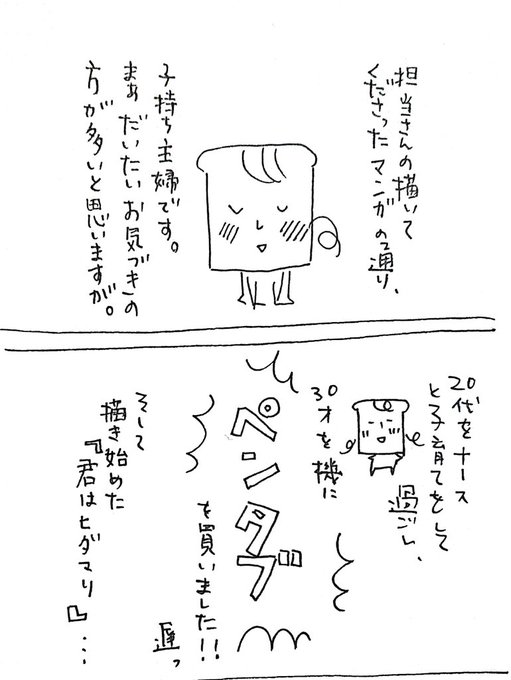 担当さんの描いて
くださったマンガの通り、
子持ち主婦です。
まぁ だいたいお気づきの
方が多いと思いますが。
20代をナース
と子育てをして
過ごし、
30才を機に
ペンタブ
を買いました!!
遅っ
そして
描き始めた
『君はヒダマリ』…